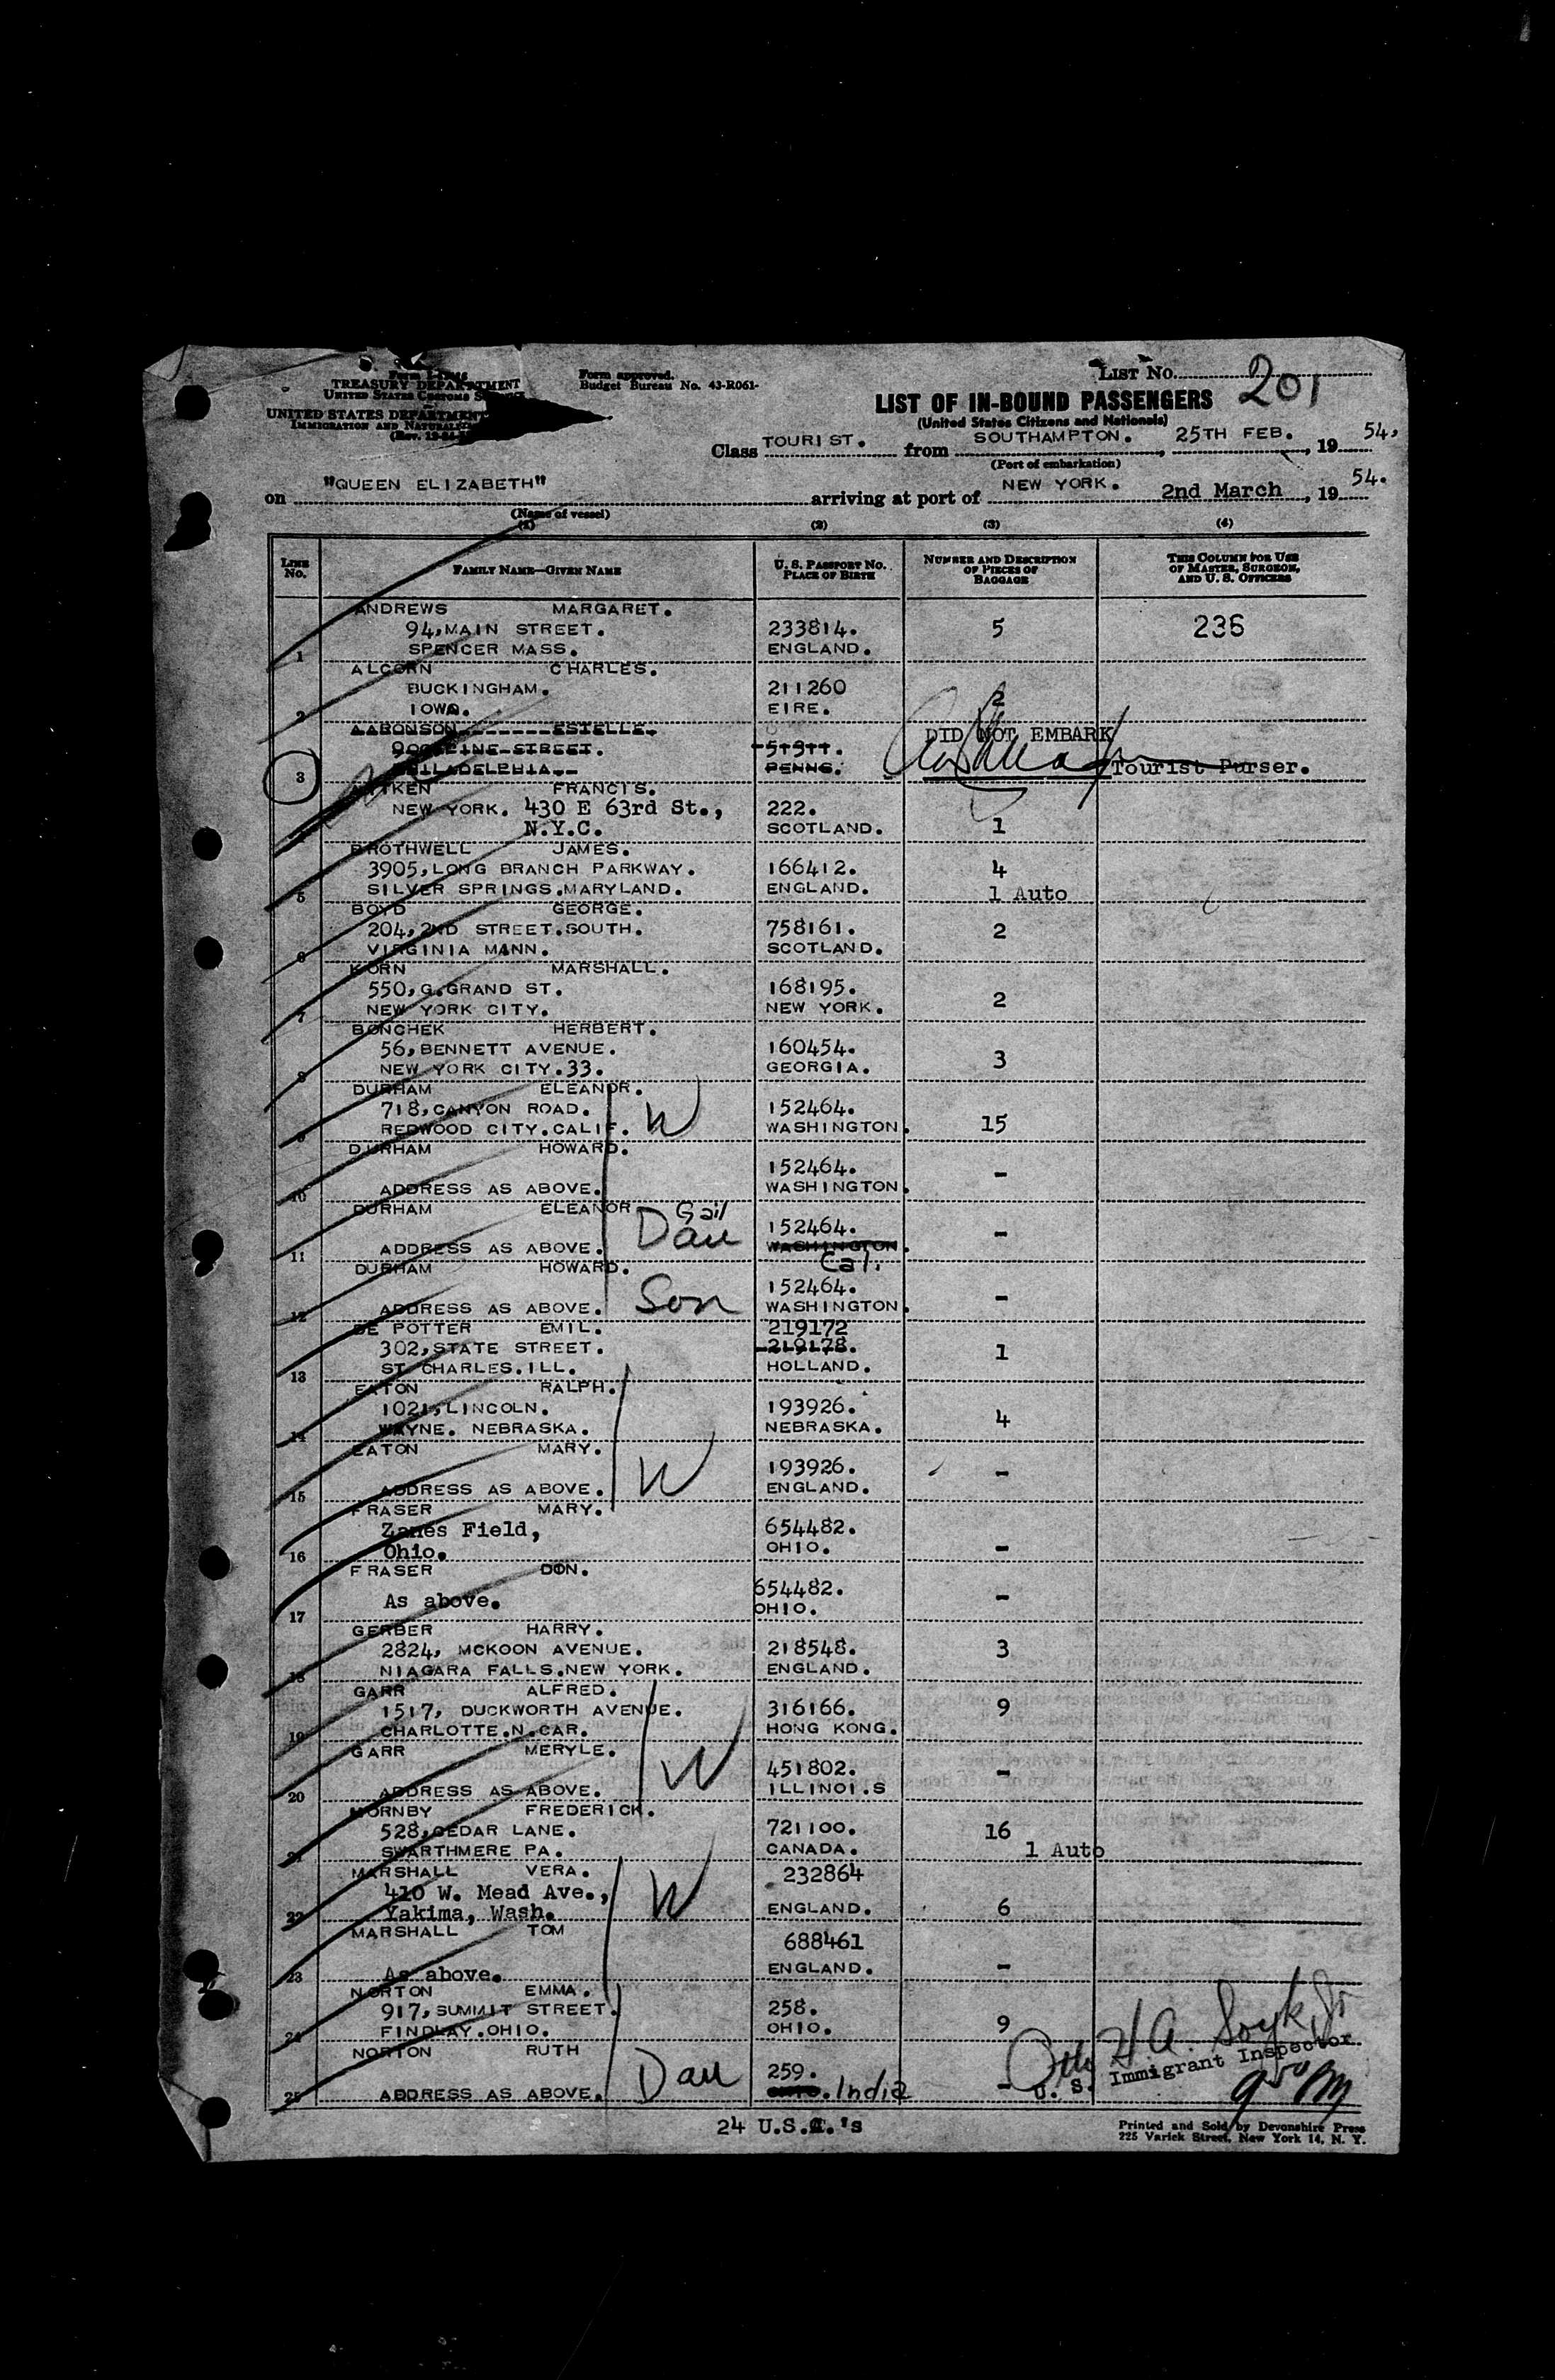 TREASURY DEPARTMENT
UNITED STATES CUSTOMS
UNITED STATES DEPARTMENT
IMMIGRATION AND
Form approved.
Budget Bureau No. 43-R061-
LIST No. 201
LIST OF IN-BOUND PASSENGERS
(United States Citizens and Nationals)
Class TOURIST. from SOUTHAMPTON. , 25TH FEB. , 19 54.
(Port of embarkation)
on "QUEEN ELIZABETH" arriving at port of NEW YORK. 2nd March , 19 54.
(Name of vessel)
(1) (2) (3) (4)
LINE No. FAMILY NAME—GIVEN NAME U. S. PASSPORT No. PLACE OF BIRTH NUMBER AND DESCRIPTION OF PIECES OF BAGGAGE THIS COLUMN FOR USE OF MASTER, SURGEON, AND U. S. OFFICERS
ANDREWS MARGARET.
94,MAIN STREET. 233814. 5 236
1 SPENCER MASS. ENGLAND.
ALCORN CHARLES.
BUCKINGHAM. 211260 2
2 IOWA. EIRE.
AARONSON ESTELLE. DID NOT EMBARK
STREET.
3 PHILADELPHIA. PENNS. Tourist Purser.
AITKEN FRANCIS.
NEW YORK. 430 E 63rd St., 222.
N.Y.C. SCOTLAND. 1
BROTHWELL JAMES.
3905,LONG BRANCH PARKWAY. 166412. 4
5 SILVER SPRINGS.MARYLAND. ENGLAND. 1 Auto
BOYD GEORGE.
204,2ND STREET.SOUTH. 758161. 2
6 VIRGINIA MINN. SCOTLAND.
KORN MARSHALL.
550,G.GRAND ST. 168195. 2
7 NEW YORK CITY. NEW YORK.
BONCHEK HERBERT.
56,BENNETT AVENUE. 160454. 3
8 NEW YORK CITY.33. GEORGIA.
DURHAM ELEANOR.
718,CANYON ROAD. W 152464. 15
9 REDWOOD CITY.CALIF. WASHINGTON.
DURHAM HOWARD.
152464. -
10 ADDRESS AS ABOVE. WASHINGTON.
DURHAM ELEANOR Gail
Dau 152464. -
11 ADDRESS AS ABOVE. WASHINGTON.
Cal.
DURHAM HOWARD.
Son 152464. -
12 ADDRESS AS ABOVE. WASHINGTON.
DE POTTER EMIL. 219172
302,STATE STREET. 219178. 1
13 ST CHARLES.ILL. HOLLAND.
EATON RALPH.
1021,LINCOLN. 193926. 4
14 WAYNE. NEBRASKA. NEBRASKA.
EATON MARY.
W 193926. -
15 ADDRESS AS ABOVE. ENGLAND.
FRASER MARY.
Zanes Field, 654482.
16 Ohio. OHIO. -
FRASER DON.
As above. 654482. -
17 OHIO.
GERBER HARRY.
2824, MCKOON AVENUE. 218548. 3
18 NIAGARA FALLS.NEW YORK. ENGLAND.
GARR ALFRED.
1517, DUCKWORTH AVENUE. 316166. 9
19 CHARLOTTE.N.CAR. HONG KONG.
GARR MERYLE.
W 451802. -
20 ADDRESS AS ABOVE. ILLINOI.S
HORNBY FREDERICK.
528,CEDAR LANE. 721100. 16
21 SWARTHMERE PA. CANADA. 1 Auto
MARSHALL VERA. 232864
410 W. Mead Ave., W
22 Yakima, Wash. ENGLAND. 6
MARSHALL TOM
688461
23 As above. ENGLAND. -
NORTON EMMA.
917,SUMMIT STREET. 258.
24 FINDLAY.OHIO. OHIO. 9
NORTON RUTH
Dau 259.
25 ADDRESS AS ABOVE. OHIO. India - U. S. Immigrant Inspector
24 U.S.C.'s
Printed and Sold by Devonshire Press
225 Varick Street, New York 14, N. Y.